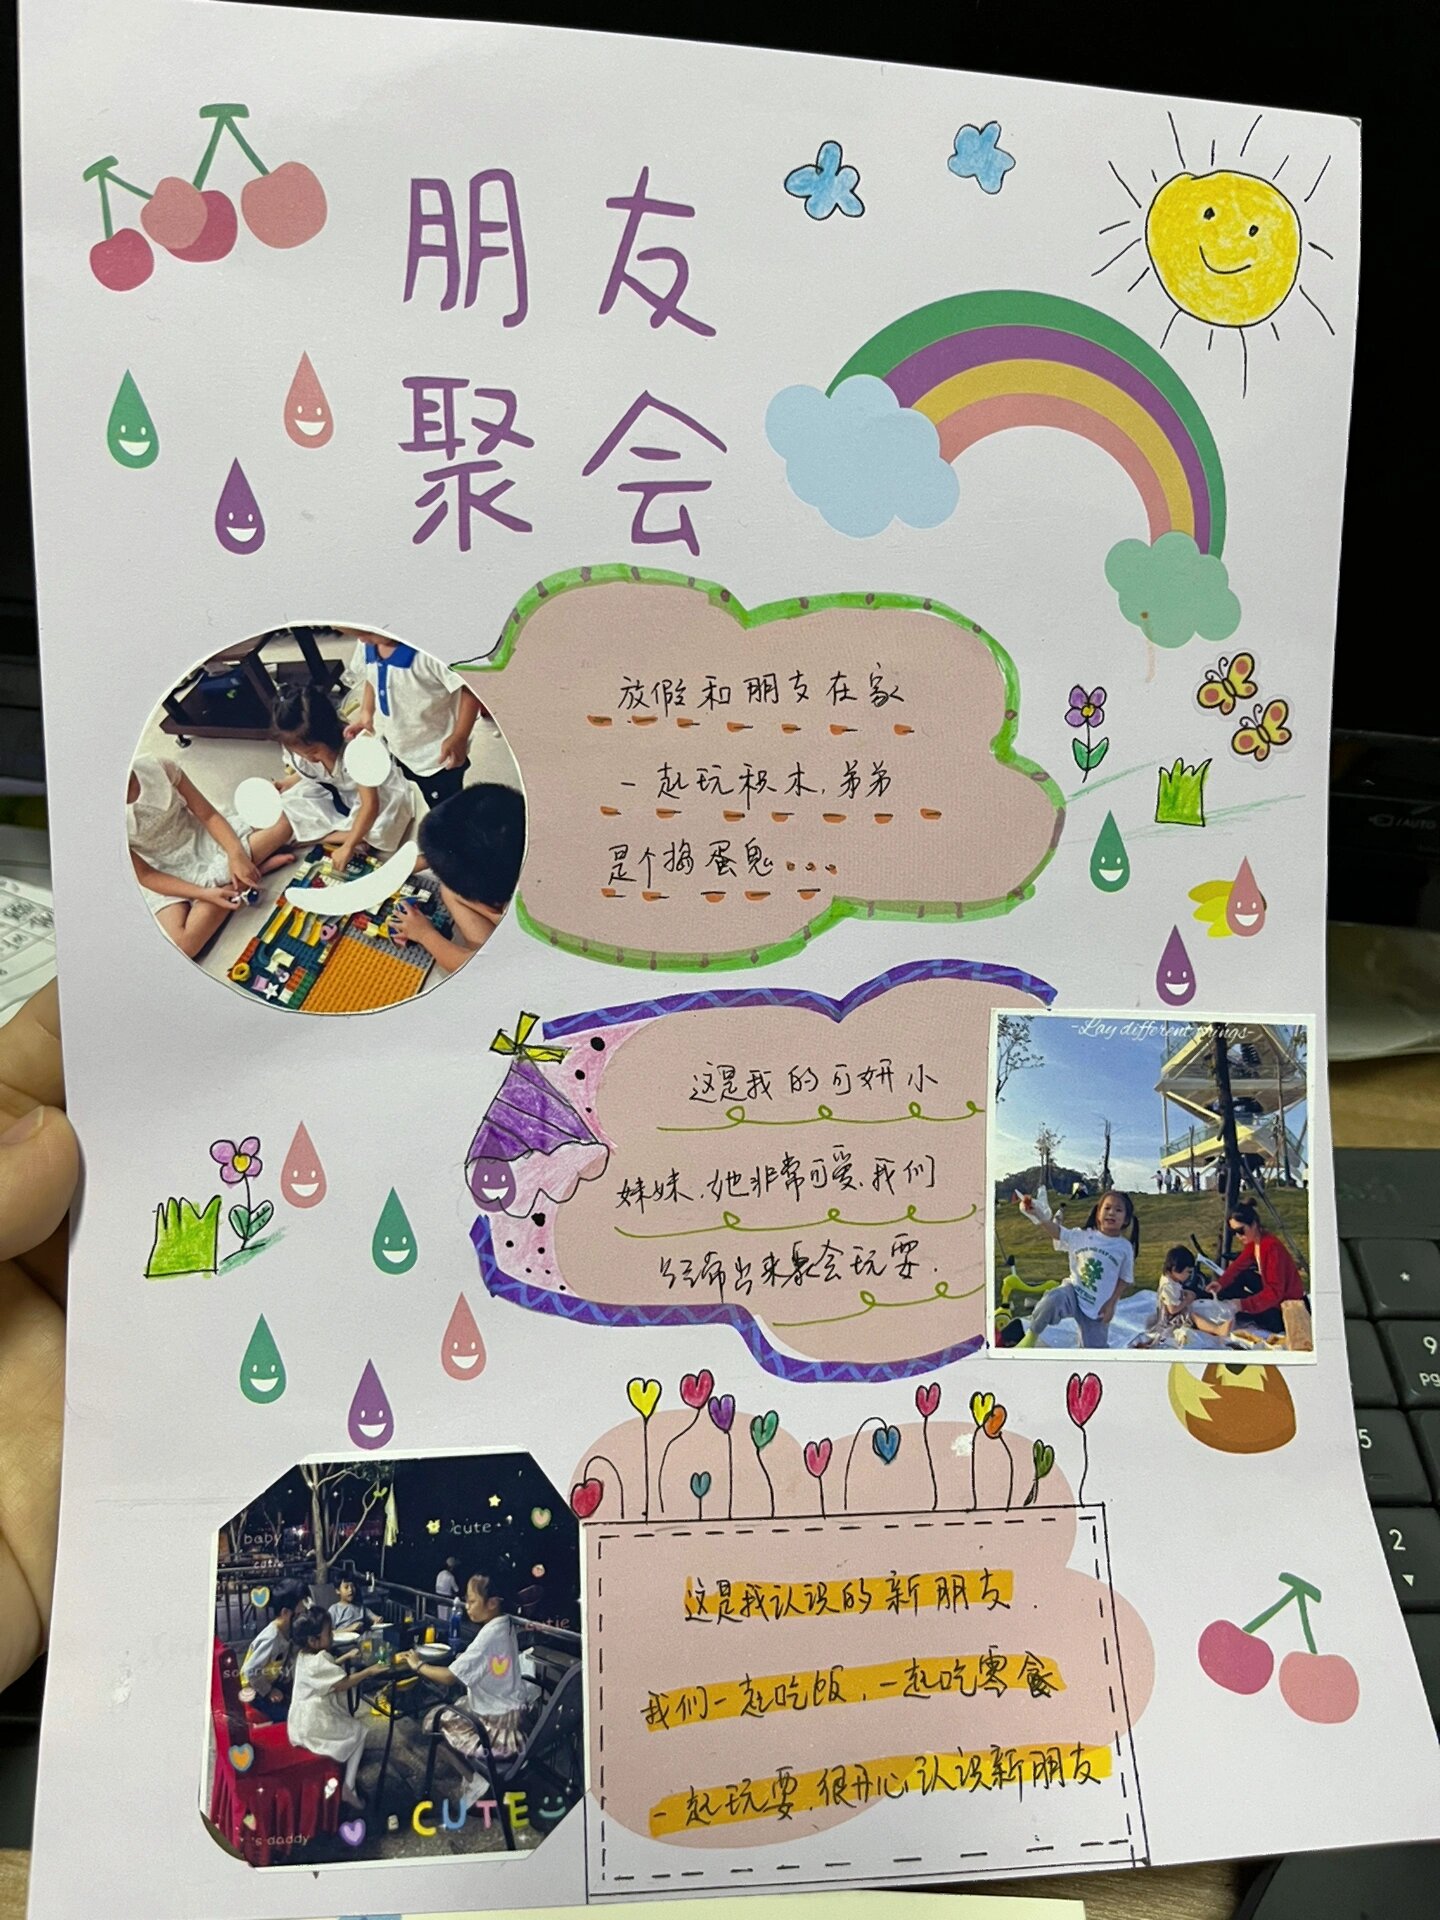 朋友
聚会
放假和朋友在家
一起玩积木,弟弟
是个捣蛋鬼...
-Lay different things-
这是我的可妍小
妹妹,她非常可爱,我们
经常出来聚会玩耍.
baby
cute
cutie
cutie
so pretty
CUTE
's daddy
这是我认识的新朋友.
我们一起吃饭,一起吃零食
一起玩耍,很开心认识新朋友
9
pg
5
2